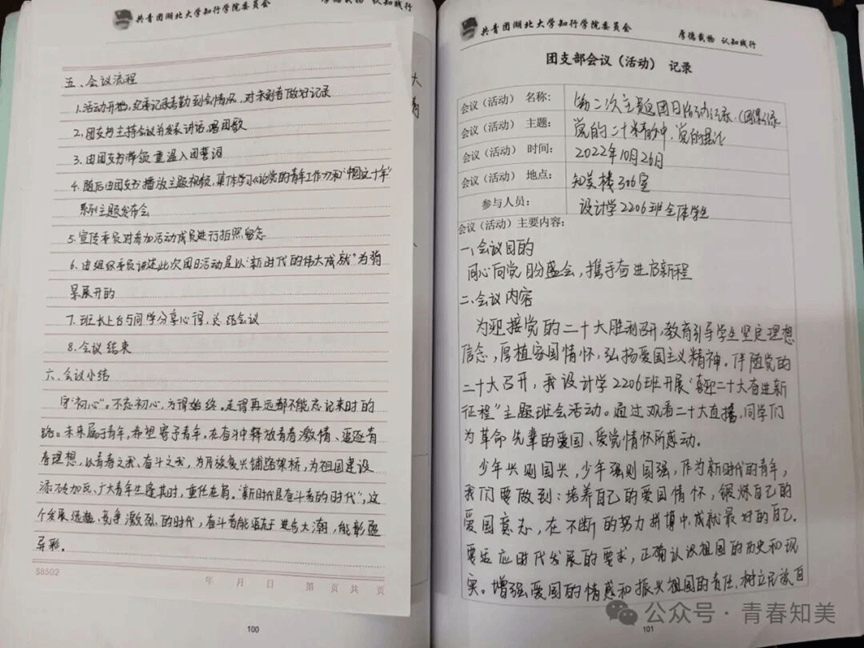 共青团湖北大学知行学院委员会
厚德载物 认知践行
五、会议流程
1.活动开始,纪委记录考勤到会情况,对未到者做好记录
2.团支书主持会议并发表讲话,唱团歌
3.由团支书带领重温入团誓词
4.随后由团支书播放主题视频,集体学习讨论党的青年工作力和"中国这十年"
系列主题发布会
5.宣传委员对参加活动成员进行拍照留念
6.由组织委员讲述此次团日活动是以"新时代的伟大成就"为背
景展开的
7.班长上台与同学分享心得,总结会议
8.会议结束
六、会议小结
守"初心"。不忘初心,方得始终。走得再远都不能忘记来时的
路。未来属于青年,希望寄予青年,在奋斗中释放青春激情、追逐青
春理想,以青春之我、奋斗之我,为民族复兴铺路架桥,为祖国建设
添砖加瓦。广大青年生逢其时,重任在肩。"新时代是奋斗者的时代",这
个发展迅猛、竞争激烈的时代,奋斗者能
进当大潮,能彰显
异彩。
55502
年 月 日 第 页 共 页
100
共青团湖北大学知行学院委员会
厚德载物 认知践行
团支部会议(活动) 记录
会议(活动) 名称: 第二次主题团日活动记录
会议(活动) 主题: 党的二十精神,党的理论
会议(活动) 时间: 2022年10月26日
会议(活动) 地点: 知美楼306室
参与人员: 设计学2206班全体学生
会议(活动)主要内容:
一、会议目的
同心向党盼盛会,携手奋进启新程
二、会议内容
为迎接党的二十大胜利召开,教育引导学生坚定理想
信念,厚植家国情怀,弘扬爱国主义精神。伴随党的
二十大召开,我设计学2206班开展"喜迎二十大奋进新
征程"主题班会活动。通过观看二十大直播,同学们
为革命先辈的爱国、爱党情怀所感动。
少年兴则国兴,少年强则国强,作为新时代的青年,
我们要做到:培养自己的爱国情怀,锻炼自己的
爱国意志,在不断的努力拼搏中成就最好的自己。
要适应时代发展的要求,正确认识祖国的历史和现
实。增强爱国的情感和振兴祖国的责任,树立民族自
101
公众号·青春知美